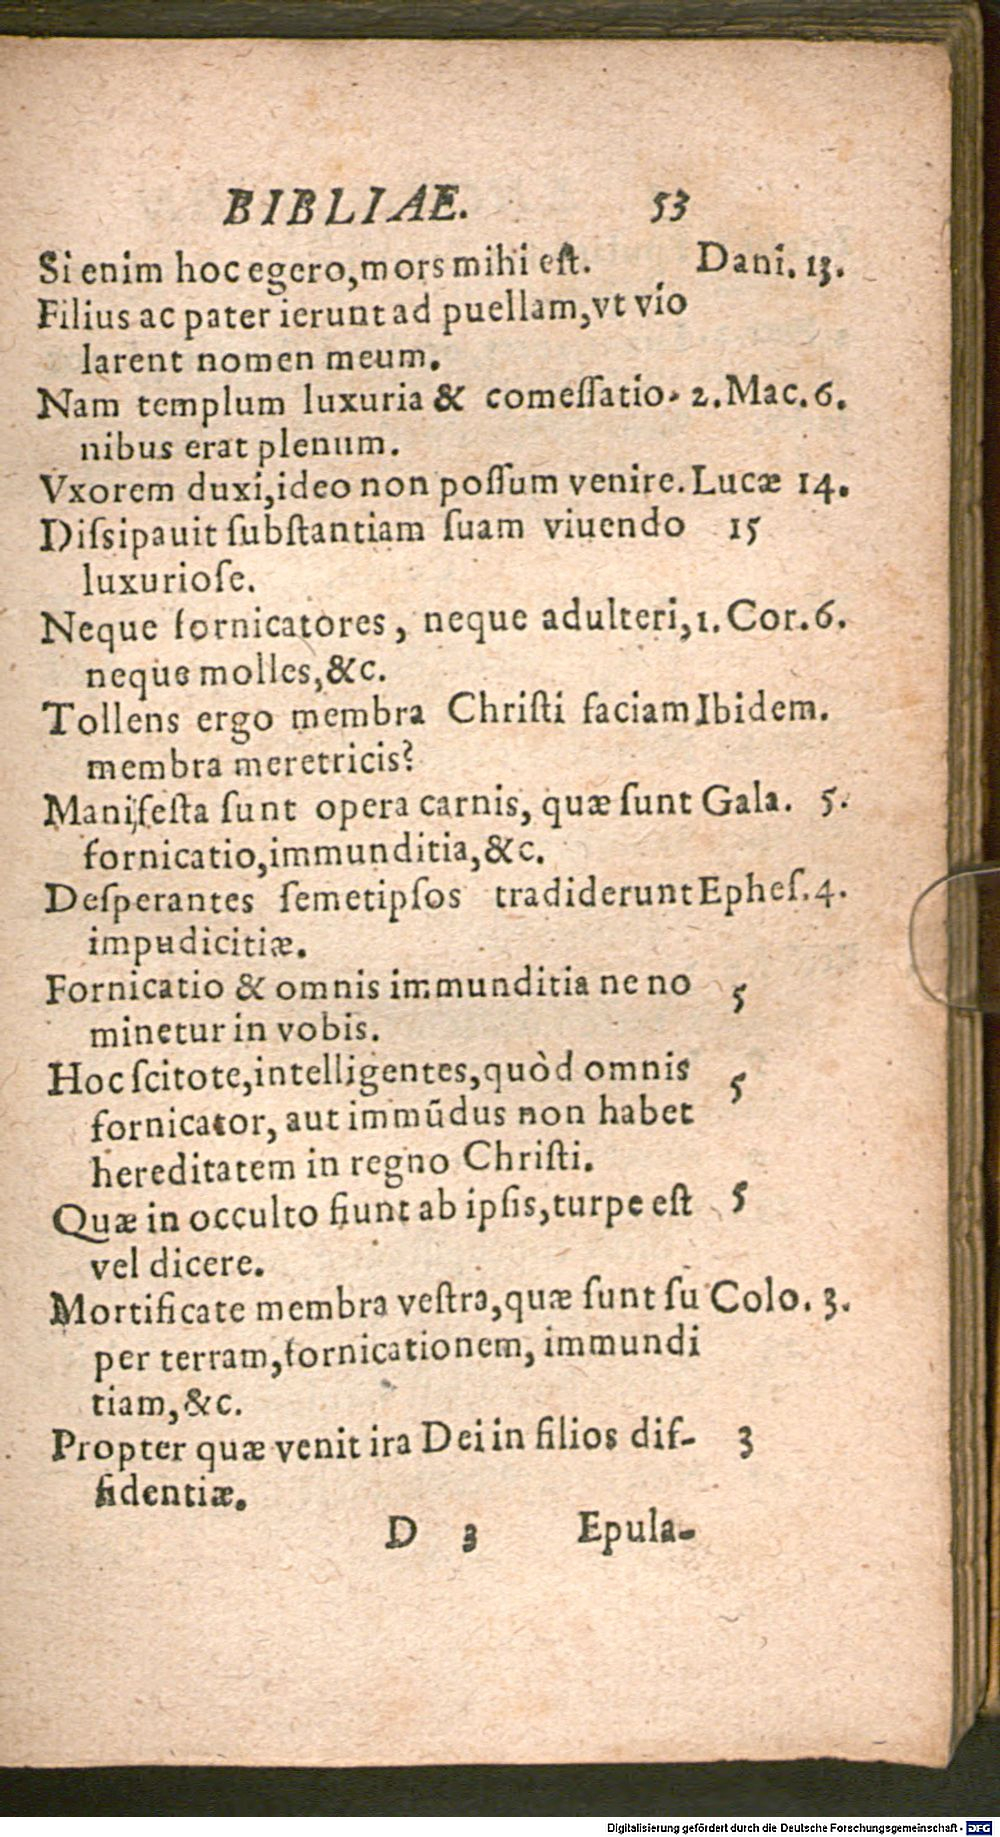 BIBLIAE. 53
Si enim hoc egero, mors mihi est. Dani. 13.
Filius ac pater ierunt ad puellam, vt vio
larent nomen meum.
Nam templum luxuria & comeſſatio- 2. Mac. 6.
nibus erat plenum.
Vxorem duxi, ideo non poſſum venire. Lucæ 14.
Diſsipauit ſubſtantiam ſuam viuendo 15
luxurioſe.
Neque fornicatores, neque adulteri, 1. Cor. 6.
neque molles, &c.
Tollens ergo membra Chriſti faciam Ibidem.
membra meretricis?
Manifeſta ſunt opera carnis, quæ ſunt Gala. 5.
fornicatio, immunditia, &c.
Deſperantes ſemetipſos tradiderunt Epheſ. 4.
impudicitiæ.
Fornicatio & omnis immunditia ne no 5
minetur in vobis.
Hoc ſcitote, intelligentes, quòd omnis 5
fornicator, aut immũdus non habet
hereditatem in regno Chriſti.
Quæ in occulto fiunt ab ipſis, turpe eſt 5
vel dicere.
Mortificate membra veſtra, quæ ſunt ſu Colo. 3.
per terram, fornicationem, immundi
tiam, &c.
Propter quæ venit ira Dei in filios dif- 3
fidentiæ.
D 3 Epula-
Digitalisierung gefördert durch die Deutsche Forschungsgemeinschaft - DFG